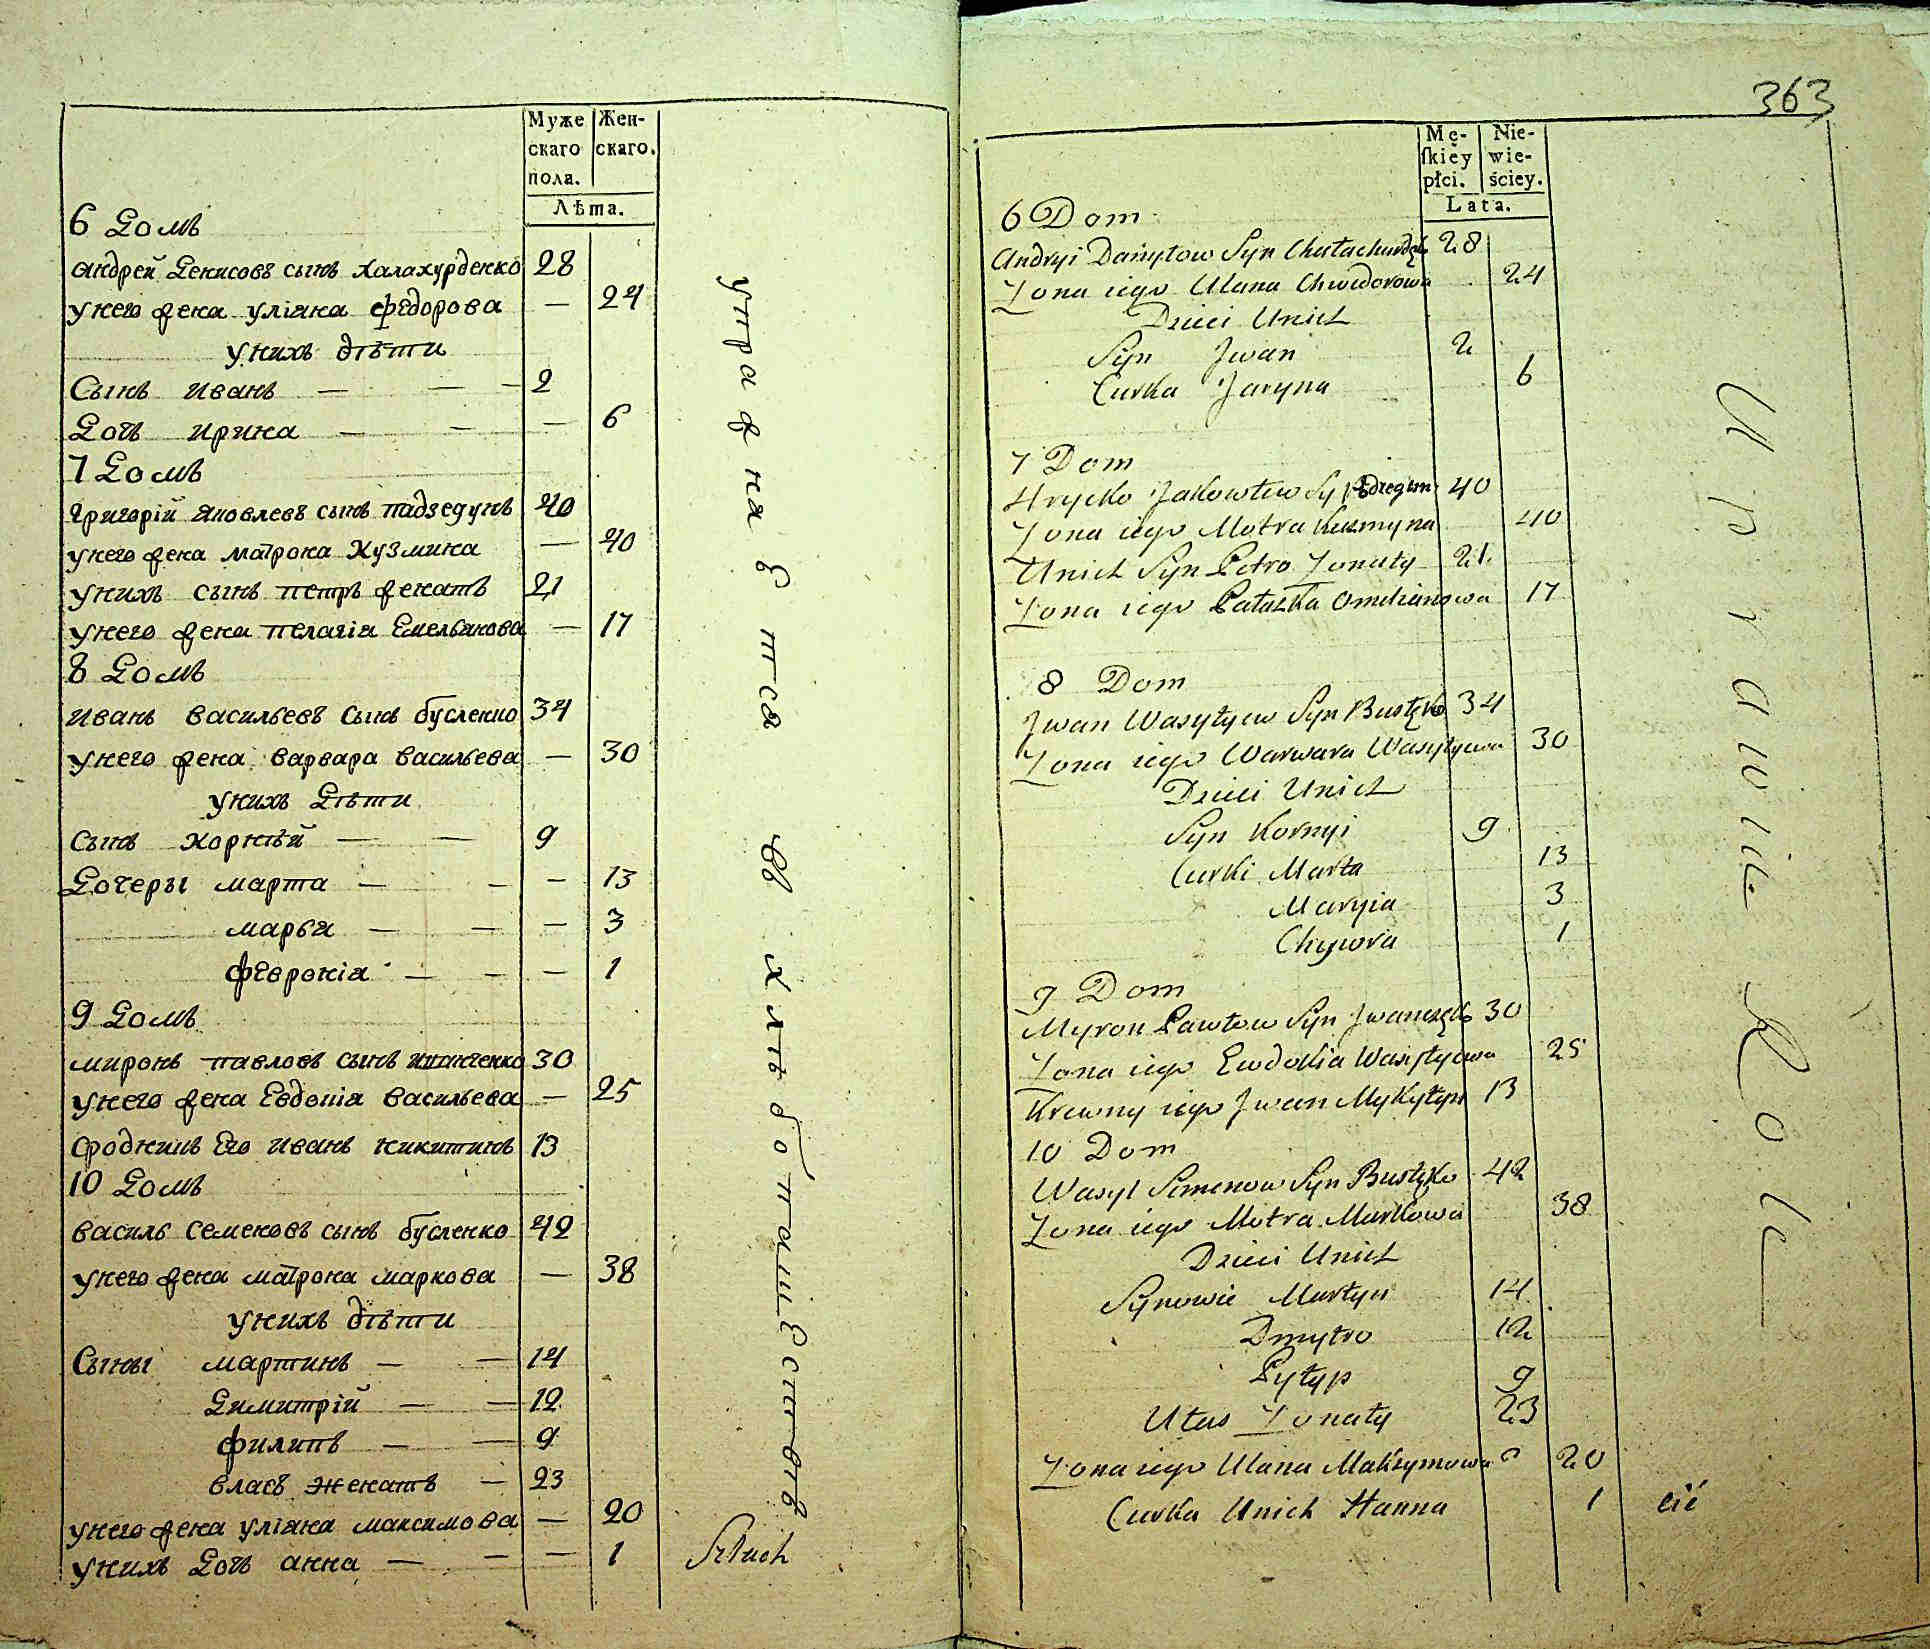 Муже
скаго
пола.
Жен-
скаго.
Лѣта.
6 Домъ
Андрей Денисовъ сынъ Халахурденко 28
у него жена Уліана Федорова — 24
у нихъ дѣти
Сынъ Иванъ — — — 2
Дочь Ирина — — — 6
7 Домъ
Григорій Яковлевъ сынъ Падзедунъ 40
у него жена Матрона Кузмина — 40
у нихъ сынъ Петръ женатъ 21
у него жена Пелагія Емельянова — 17
8 Домъ
Иванъ Васильевъ сынъ Бусленко 34
у него жена Варвара Васильева — 30
у нихъ Дѣти
Сынъ Корнѣй — — 9
Дочеры Марта — — — 13
Марья — — — 3
Февронія — — — 1
9 Домъ
Миронъ Павловъ сынъ Иванченко 30
у него жена Евдокія Васильева — 25
Сродникъ Его Иванъ Никитинъ 13
10 Домъ
Василь Семеновъ сынъ Бусленко 42
у него жена Матрона Маркова — 38
у нихъ дѣти
Сыны Мартинъ — — 14
Димитрій — — 12
Филипъ — — 9
Власъ женатъ — 23
у него жена Уліана Максимова — 20
у нихъ Дочь Анна — — — 1
упражнаетса въ хлѣбопашествѣ
Szluch
363
Mę-
ſkiéy
płci.
Nie-
wie-
ściey.
Lata.
6 Dom
Andryi Syn 28
Zona iego Ulana Chwedorowa 24
Dzieci Unich
Syn Jwan 2
Curka Jaryna 6
7 Dom
Hrycko Jakowlew Syn 40
Zona iego Motra Kuzmyna 40
Unich Syn Petro Zonaty 21.
Zona iego Palazka Omelianowa 17
8 Dom
Jwan Wasylyew Syn Buslęko 34
Zona iego Warwara Wasylyewa 30
Dzieci Unich
Syn Kornyi 9
Curki Marta 13
Maryia 3
Chywra 1
9 Dom
Myron Pawlow Syn Jwanczęko 30
Zona iego Ewdokia Wasylyewa 25
Krewny iego Jwan Mykytyn 13
10 Dom
Wasyl Semenow Syn Buslęko 42
Zona iego Motra Markowa 38
Dzieci Unich
Synowie Martyn 14
Dmytro 12
Pylyp 9
Ulas Zonaty 23
Zona iego Ulana Maksymowa 20
Curka Unich Hanna 1
Uprawie Role
cié